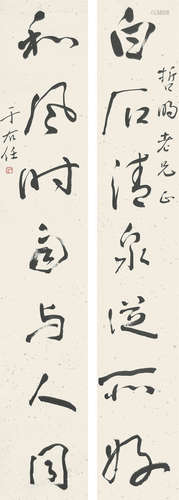 哲老兄正
白石清泉從所好
和風时雨与人同
于右任